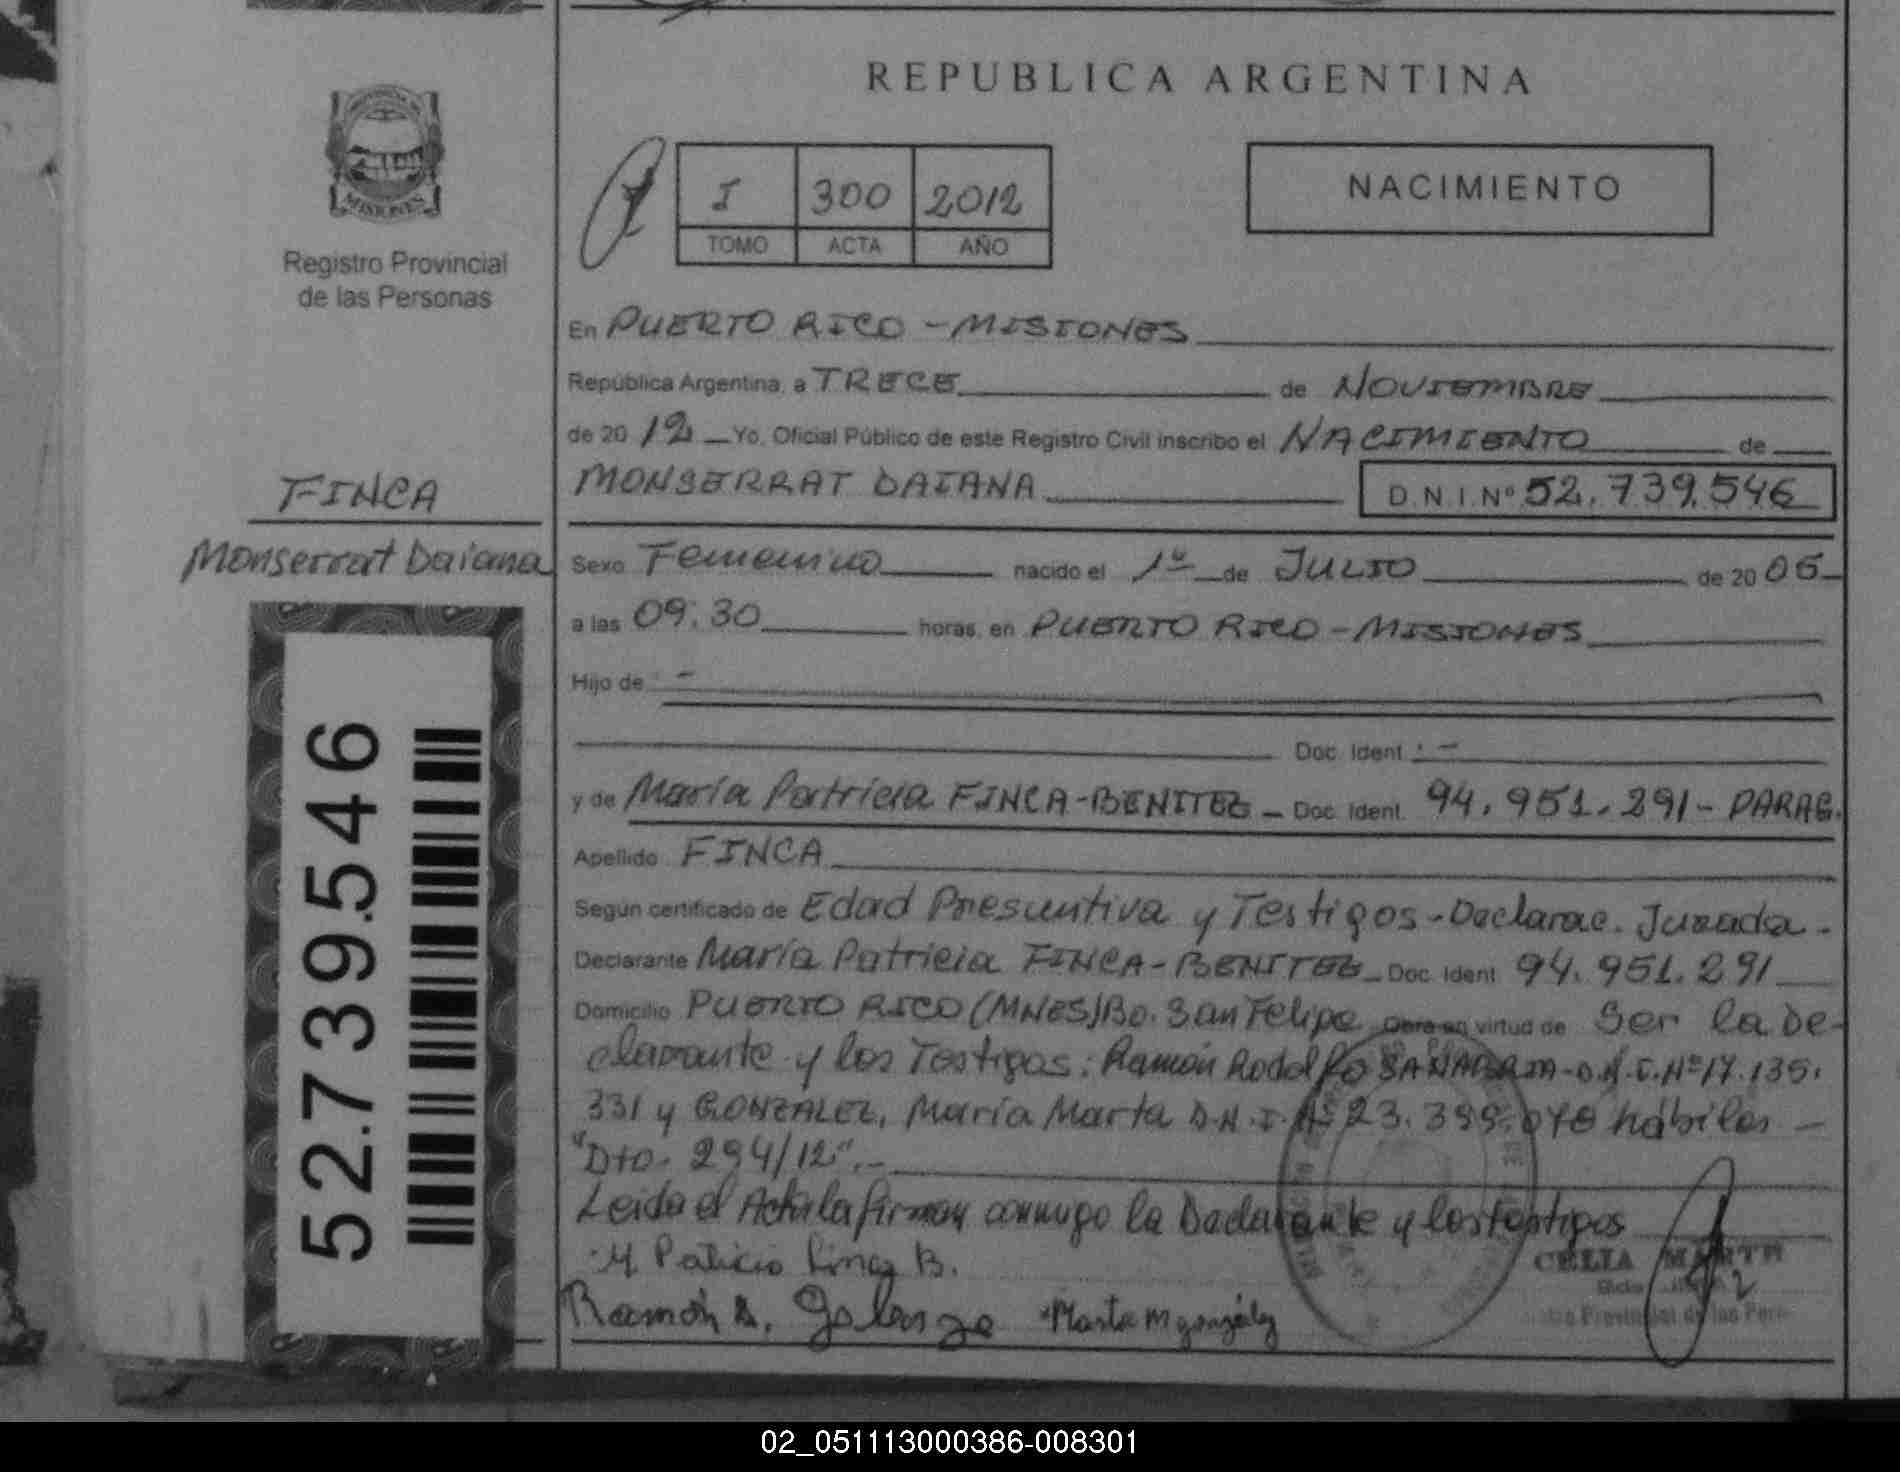 REPUBLICA ARGENTINA
MISIONES
Registro Provincial
de las Personas
I 300 2012
TOMO ACTA AÑO
NACIMIENTO
En PUERTO RICO - MISIONES
República Argentina, a TRECE de NOVIEMBRE
de 20 12 Yo, Oficial Público de este Registro Civil inscribo el NACIMIENTO de
MONSERRAT DAIANA D.N.I.Nº 52.739.546
FINCA
Monserrat Daiana
52.739.546
Sexo Femenino nacido el 1º de JULIO de 20 05
a las 09:30 horas, en PUERTO RICO - MISIONES
Hijo de -
Doc. Ident. -
y de María Patricia FINCA-BENITEZ - Doc. Ident. 94.951.291- PARAG.
Apellido FINCA
Según certificado de Edad Presuntiva y Testigos - Declarac. Jurada -
Declarante María Patricia FINCA-BENITEZ - Doc. Ident. 94.951.291
Domicilio PUERTO RICO (MNES) Bo. San Felipe Obra en virtud de Ser la De-
clarante y los Testigos: Ramón Rodolfo SANABRIA - D.N.I. Nº 17.135.
331 y GONZALEZ, María Marta D.N.I. Nº 23.399.070 hábiles -
"Dto. 294/12".-
Leida el Acta la firman conmigo la Declarante y los testigos
M. Patricia Finca B.
Ramón Marta M gonzález
CELIA
Provincial de las Pers
02_051113000386-008301